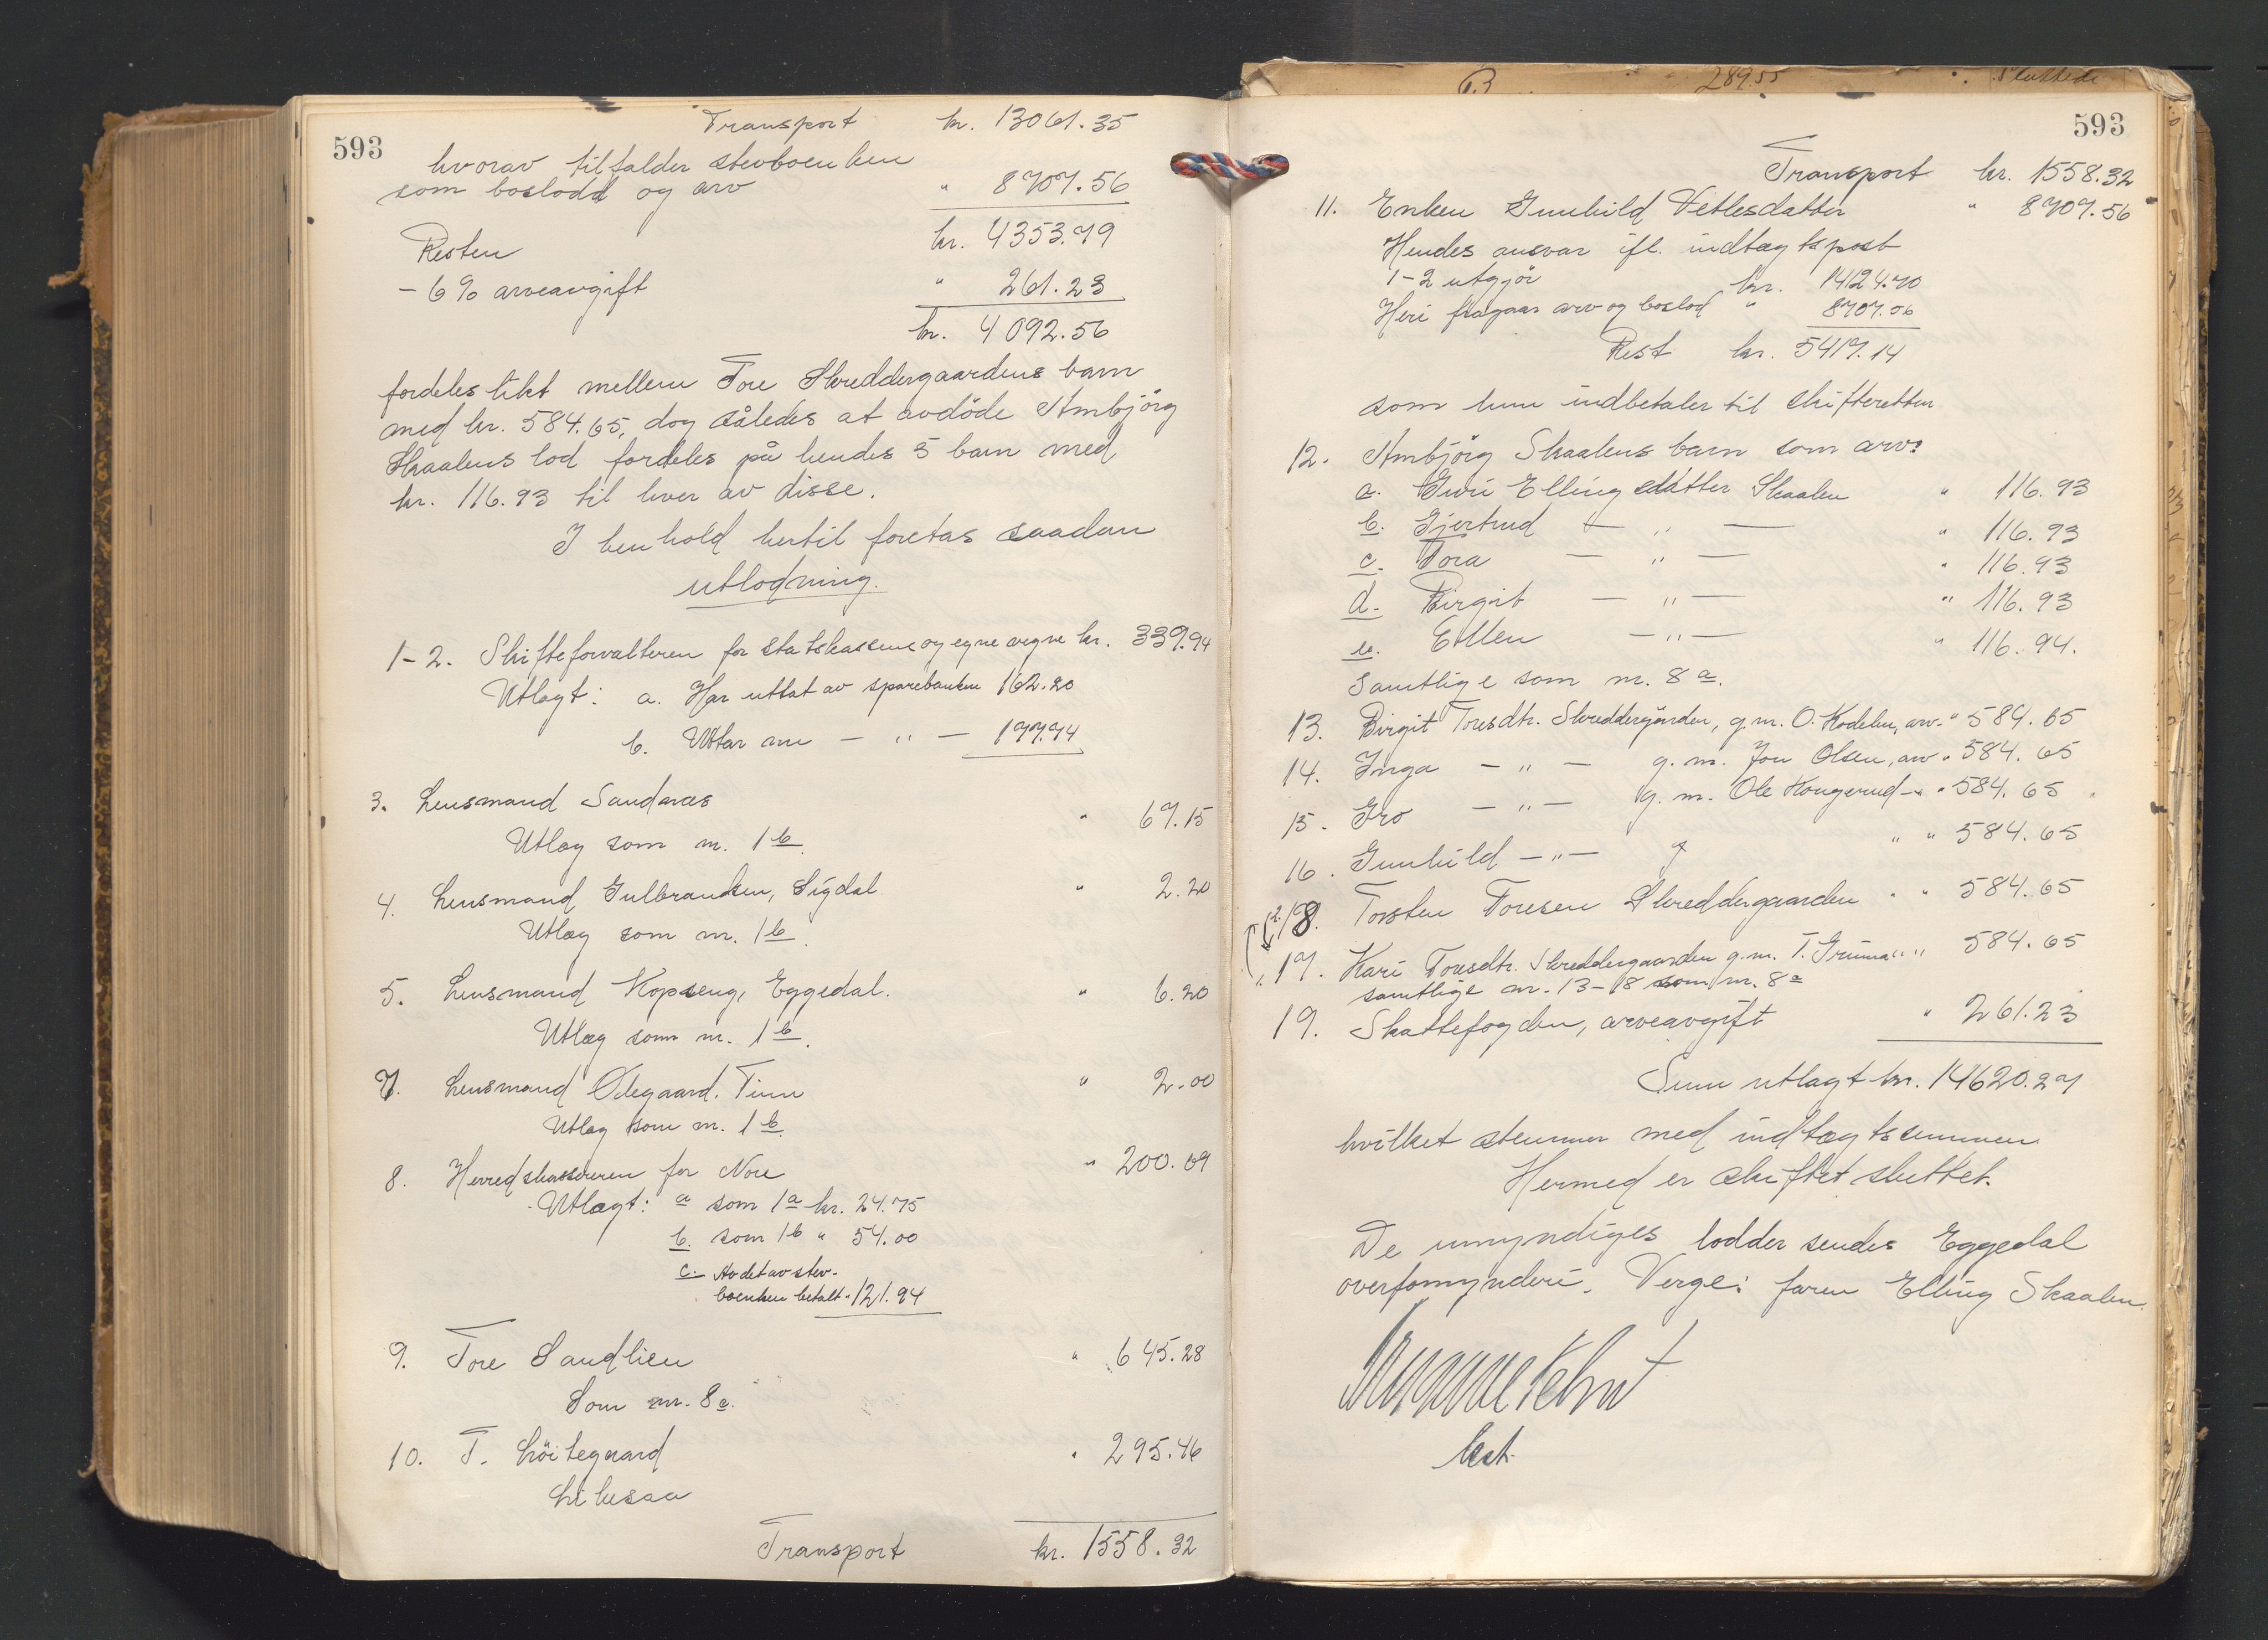 593
Transport kr. 13061.35
hvorav tilfalder stevboenken
som boslodd og arv " 8707.56
Resten kr. 4353.79
- 6% arveavgift " 261.23
kr. 4092.56
fordeles likt mellem Tore Skreddergaardens barn
med kr. 584.65, dog således at avdöde Ambjörg
Skaalens lod fordeles på hendes 5 barn med
kr. 116.93 til hver av disse.
I henhold hertil foretas saadan
utlodning.
1-2. Skifteforvalteren for statskassens og egne vegne kr. 339.94
Utlagt: a. Har uttat av sparebanken 162.20
b. Uttar nu — " — 177.74
3. Lensmand Sandaas " 67.15
Utlæg som nr. 1 b.
4. Lensmand Gulbrandsen, Sigdal " 2.20
Utlæg som nr. 1 b.
5. Lensmand Kopseng, Eggedal. " 6.20
Utlæg som nr. 1 b.
7. Lensmand Ødegaard. Tinn " 2.00
Utlæg som nr. 1 b.
8. Herredskassereren for Nore " 200.69
Utlagt: a som 1 a kr. 24.75
b. som 1 b " 54.00
c. Av det av stev-
boenken betalt " 121.94
9. Tore Sandlien " 645.28
Som nr. 8 a.
10. T. Löitegaard " 295.46
Likesaa
Transport kr. 1558.32
B 289.55 Sluttede
593
Transport kr. 1558.32
11. Enken Gunhild Vetlesdatter " 8707.56
Hendes ansvar ifl. indtægtspost
1-2 utgjör kr. 14124.70
Heri fragaar arv og boslod " 8707.56
Rest kr. 5417.14
som hun indbetaler til skifteretten
12. Ambjörg Skaalens barn som arv:
a. Guri Ellingsdatter Skaalen " 116.93
b. Gjertrud — " — " 116.93
c. Tora — " — " 116.93
d. Birgit — " — " 116.93
e. Ellen — " — " 116.94.
Samtlige som nr. 8 a.
13. Birgit Toresdtr. Skreddergården, g.m. O. Kodelen, arv. " 584.65
14. Inga — " — g.m. Jon Olsen, arv " 584.65
15. Gro — " — g.m. Ole Kongerud - " " 584.65
16. Gunhild — " — g " " 584.65
18. Torsten Toresen Skreddergaarden " " 584.65
17. Kari Toresdtr. Skreddergaarden g.m. T. Gruma " " 584.65
samtlige nr. 13-18 som nr. 8 a
19. Skattefogden, arveavgift " 261.23
Sum utlagt kr. 14620.27
hvilket stemmer med indtægtssummen.
Hermed er skiftet sluttet.
De umyndiges lodder sendes Eggedal
overfomynderi. Verge: faren Elling Skaalen.